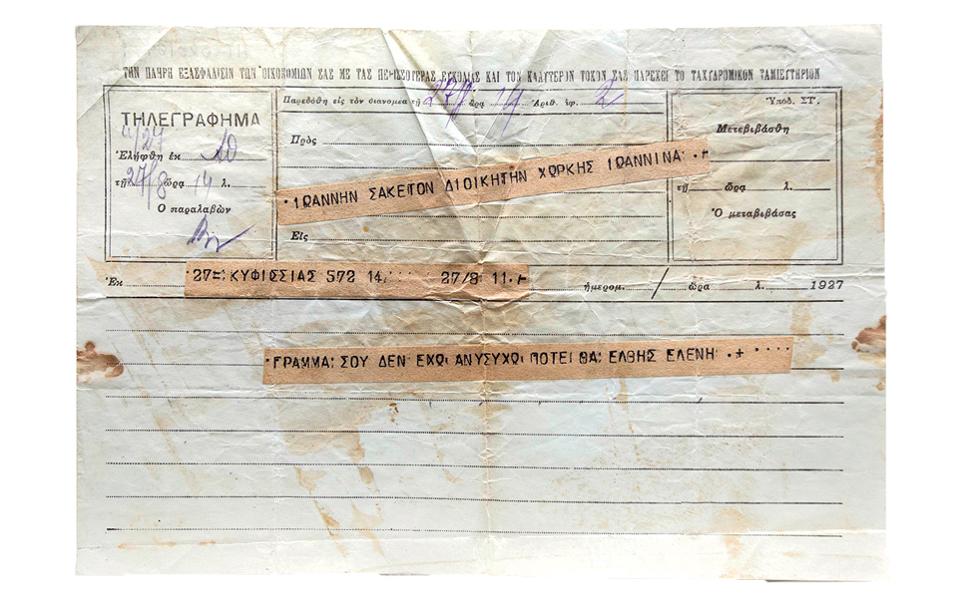 ΤΗΝ ΠΛΗΡΗ ΕΞΑΣΦΑΛΙΣΙΝ ΤΩΝ ΟΙΚΟΝΟΜΙΩΝ ΣΑΣ ΜΕ ΤΑΣ ΠΕΡΙΣΣΟΤΕΡΑΣ ΕΥΚΟΛΙΑΣ ΚΑΙ ΤΟΝ ΚΑΛΥΤΕΡΟΝ ΤΟΚΟΝ ΣΑΣ ΠΑΡΕΧΕΙ ΤΟ ΤΑΧΥΔΡΟΜΙΚΟΝ ΤΑΜΙΕΥΤΗΡΙΟΝ
ΤΗΛΕΓΡΑΦΗΜΑ
4/27
Ἐλήφθη ἐκ
τῇ 27/8 ὥρα 14 λ.
Ὁ παραλαβὼν
Παρεδόθη εἰς τὸν διανομέα τῇ 27/8 ὥρα 14 Ἀριθ. ἐφ. 2
Πρὸς
·ΙΩΑΝΝΗΝ ΣΑΚΕΙΤΟΝ ΔΙΟΙΚΗΤΗΝ ΧΩΡΚΗΣ ΙΩΑΝΝΙΝΑ· ·+
Εἰς
Ὑπόδ. ΣΤ΄.
Μετεβιβάσθη
τῇ ὥρα λ.
Ὁ μεταβιβάσας
Ἐκ 27=: ΚΥΦΙΣΣΙΑΣ 572 14, 27/8 11·+ ἡμερομ. / ὥρα λ. 1927
·ΓΡΑΜΜΑ: ΣΟΥ ΔΕΝ ΕΧΩ: ΑΝΥΣΥΧΩ: ΠΟΤΕΙ ΘΑ: ΕΛΘΗΣ ΕΛΕΝΗ ·+ ····